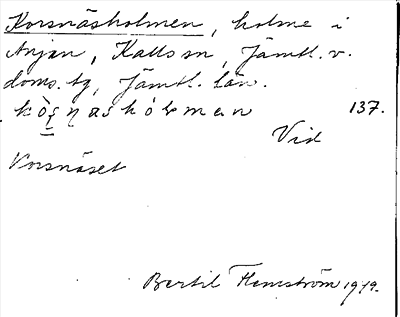 Korsnäsholmen, holme i
Anjan, Kalls sn, Jämtl. v.
doms. tg, Jämtl. län.
137.
Vid
Korsnäset
Bertil Flemström 1919.